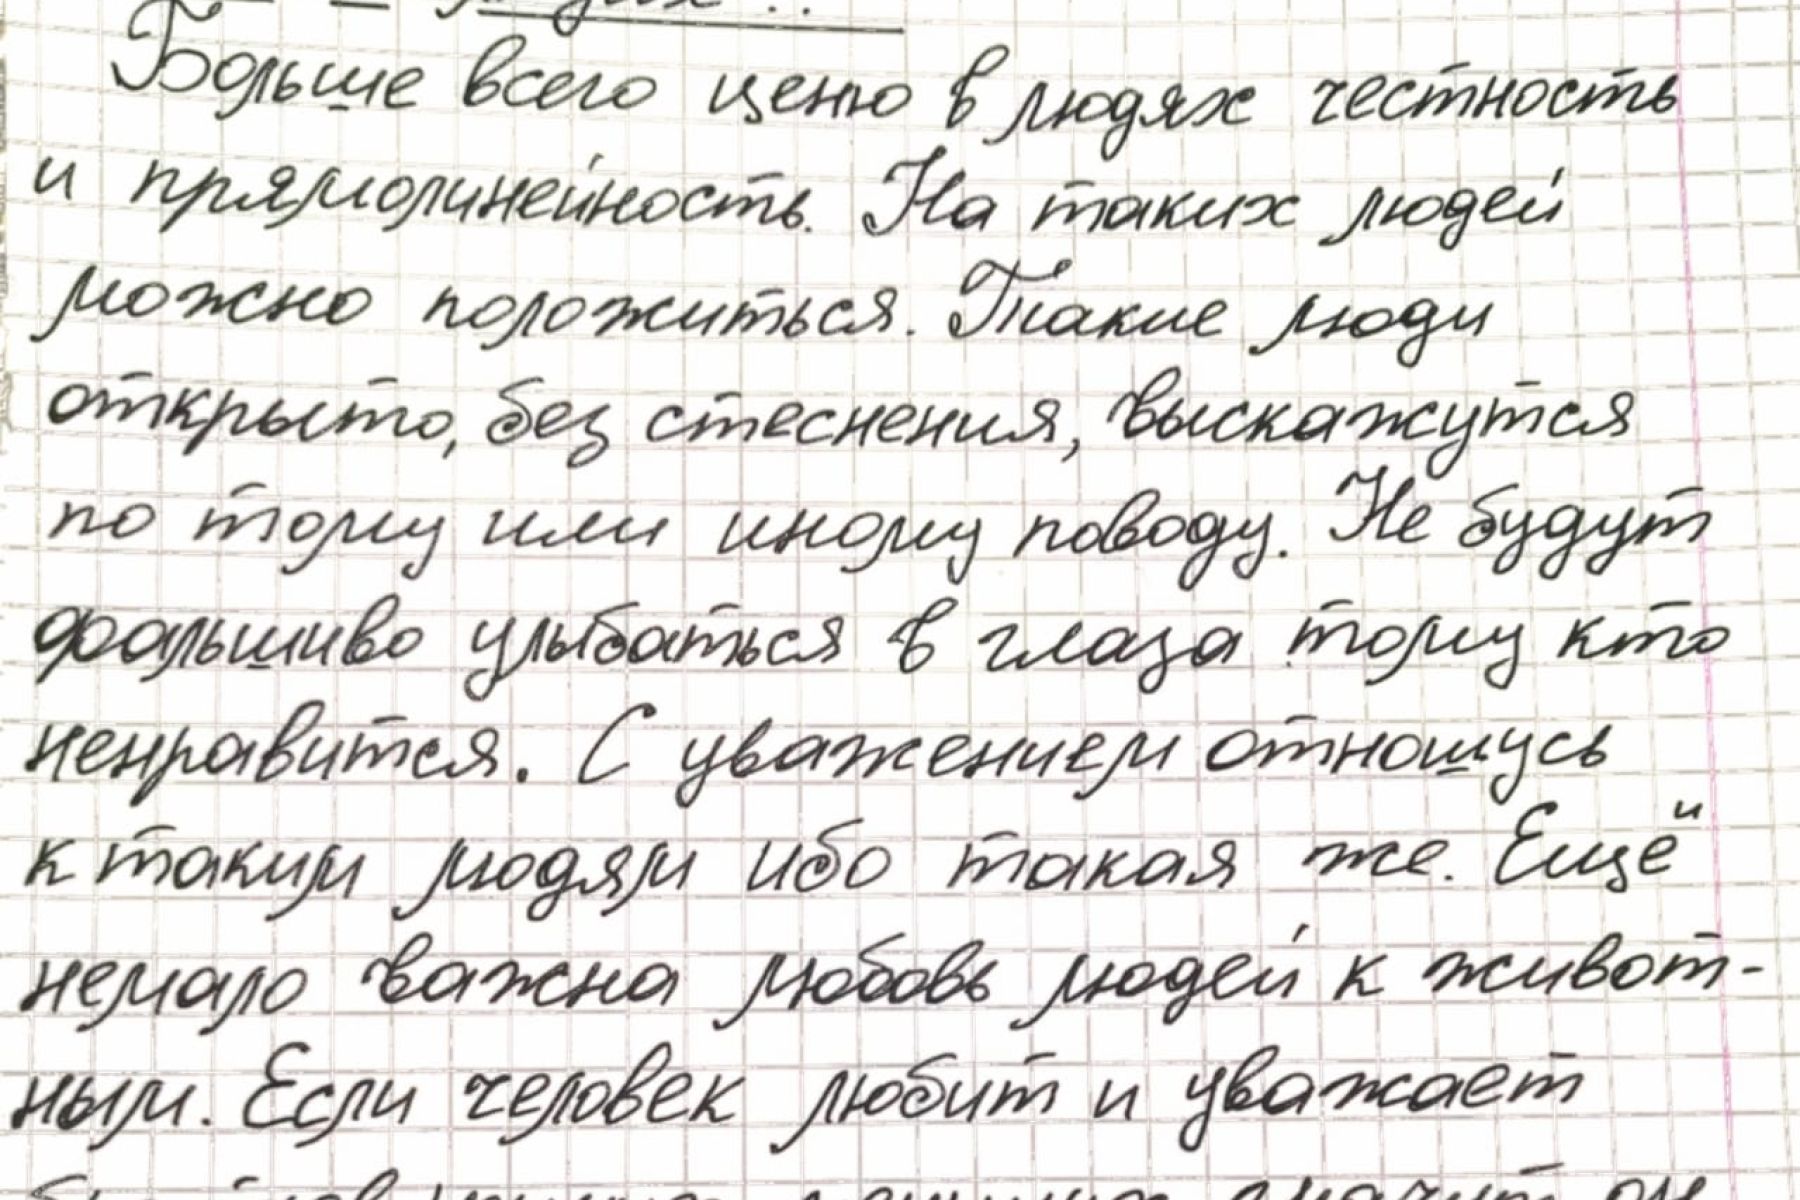 Больше всего ценю в людях честность
и прямолинейность. На таких людей
можно положиться. Такие люди
открыто, без стеснения, выскажутся
по тому или иному поводу. Не будут
фальшиво улыбаться в глаза тому кто
ненравится. С уважением отношусь
к таким людям ибо такая же. Ещё и
немало важна любовь людей к живот-
ным. Если человек любит и уважает